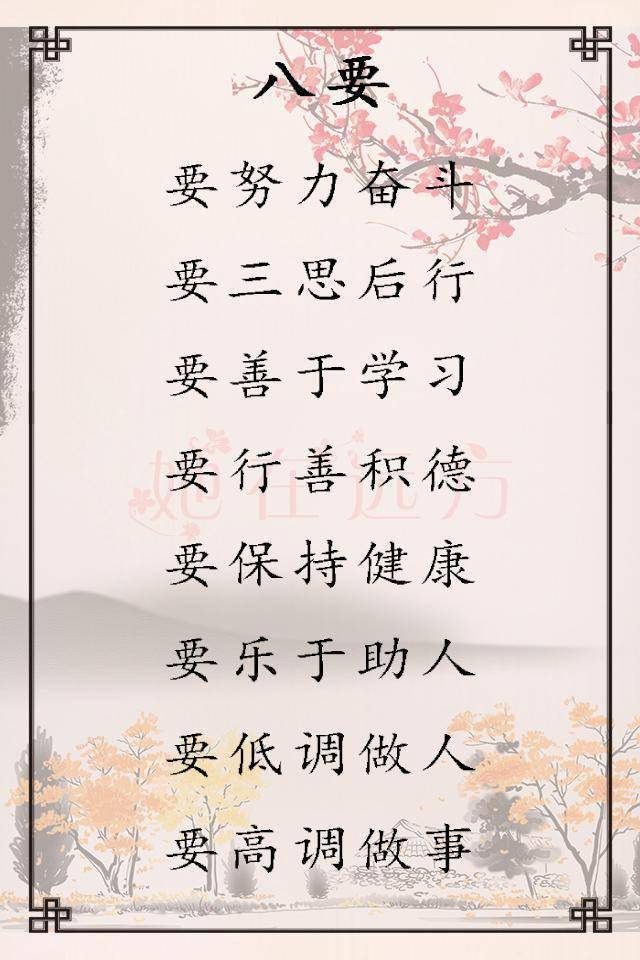 八要
要努力奋斗
要三思后行
要善于学习
她在远方
要行善积德
要保持健康
要乐于助人
要低调做人
要高调做事